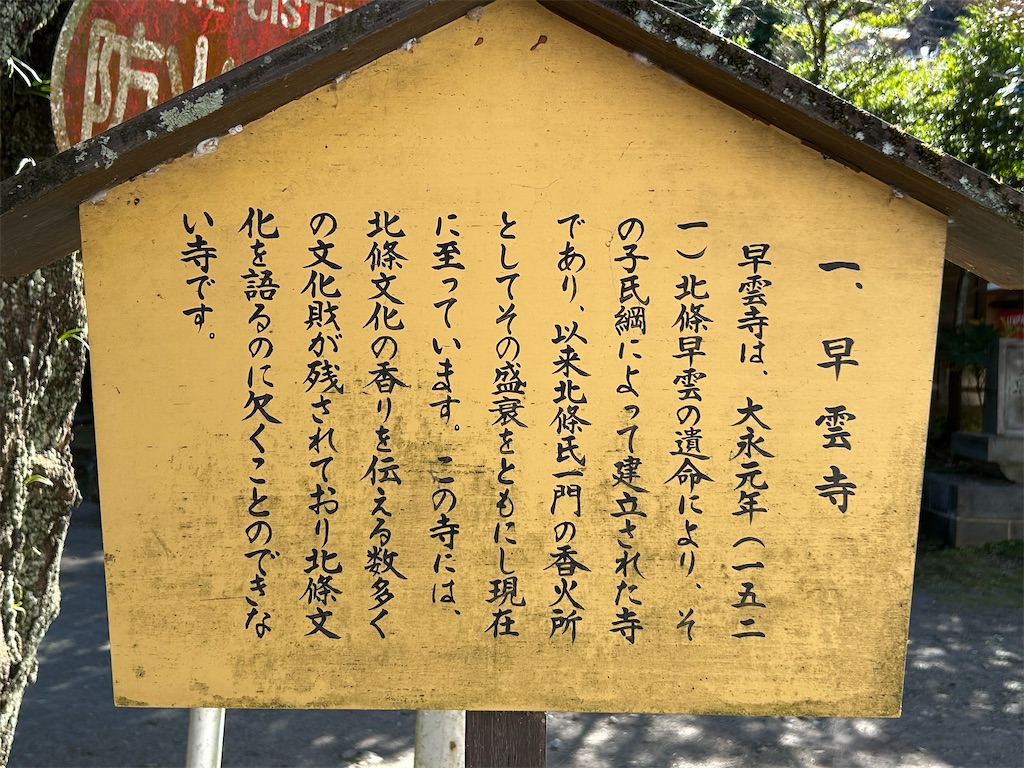 一、早雲寺
早雲寺は、大永元年(一五二
一)北條早雲の遺命により、そ
の子氏綱によって建立された寺
であり、以来北條氏一門の香火所
としてその盛衰をともにし現在
に至っています。この寺には、
北條文化の香りを伝える数多く
の文化財が残されており北條文
化を語るのに欠くことのできな
い寺です。
防